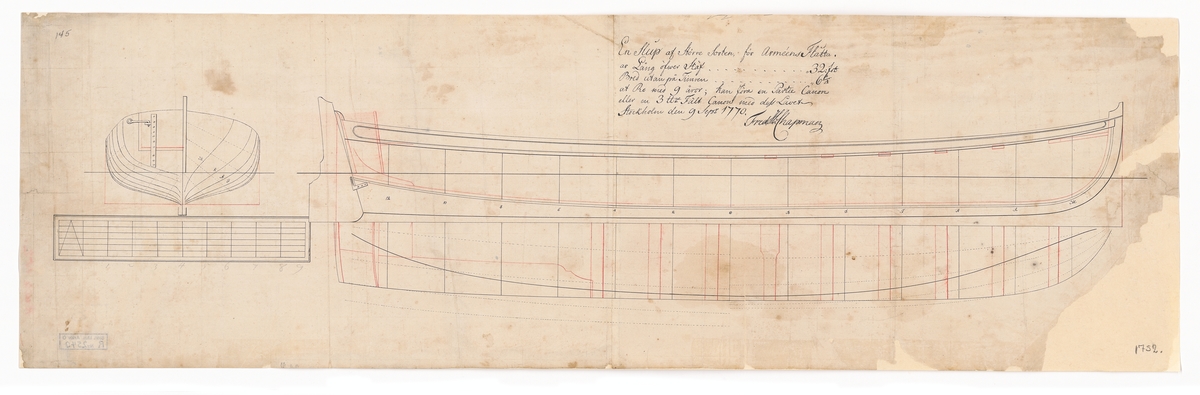 145
En Slup af Större Sorten, för Arméens Flotta.
ar Läng öfwer Stäf . . . . . . . . . . 32 fot
Bred utan på Timren . . . . . . . . . 6½
at Ro med 9 åror; kan föra en Partie Canon
eller en 3 Fält Canon med dess Lavet
Stockholm den 9 Sept 1770.
Fred H Chapman
1752.